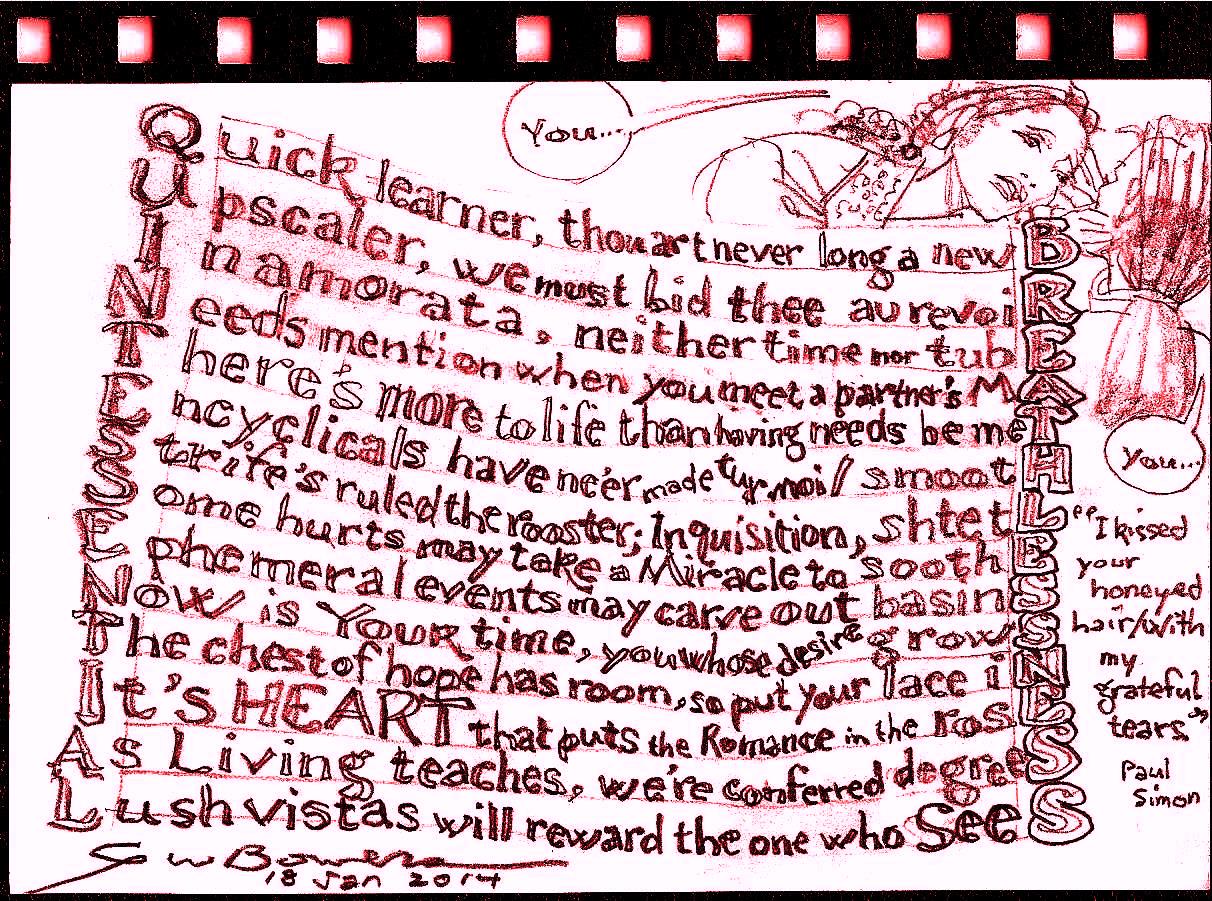 You...
Quick learner, thou art never long a newB
Upscaler, we must bid thee au revoiR
Inamorata, neither time nor tubE
Needs mention when you meet a partner's MA
There's more to life than having needs be meT
Encyclicals have ne'er made turmoil smootH
Strife's ruled the rooster; Inquisition, shtetL
Some hurts may take a Miracle to soothE
Ephemeral events may carve out basinS
Now is Your time, you whose desire growS
The chest of hope has room, so put your lace iN
It's HEART that puts the Romance in the rosE
As Living teaches, we're conferred degreeS
Lush vistas will reward the one who SeeS
You...
"I kissed
your
honeyed
hair/with
my
grateful
tears"
Paul
Simon
SwBowers
18 Jan 2014